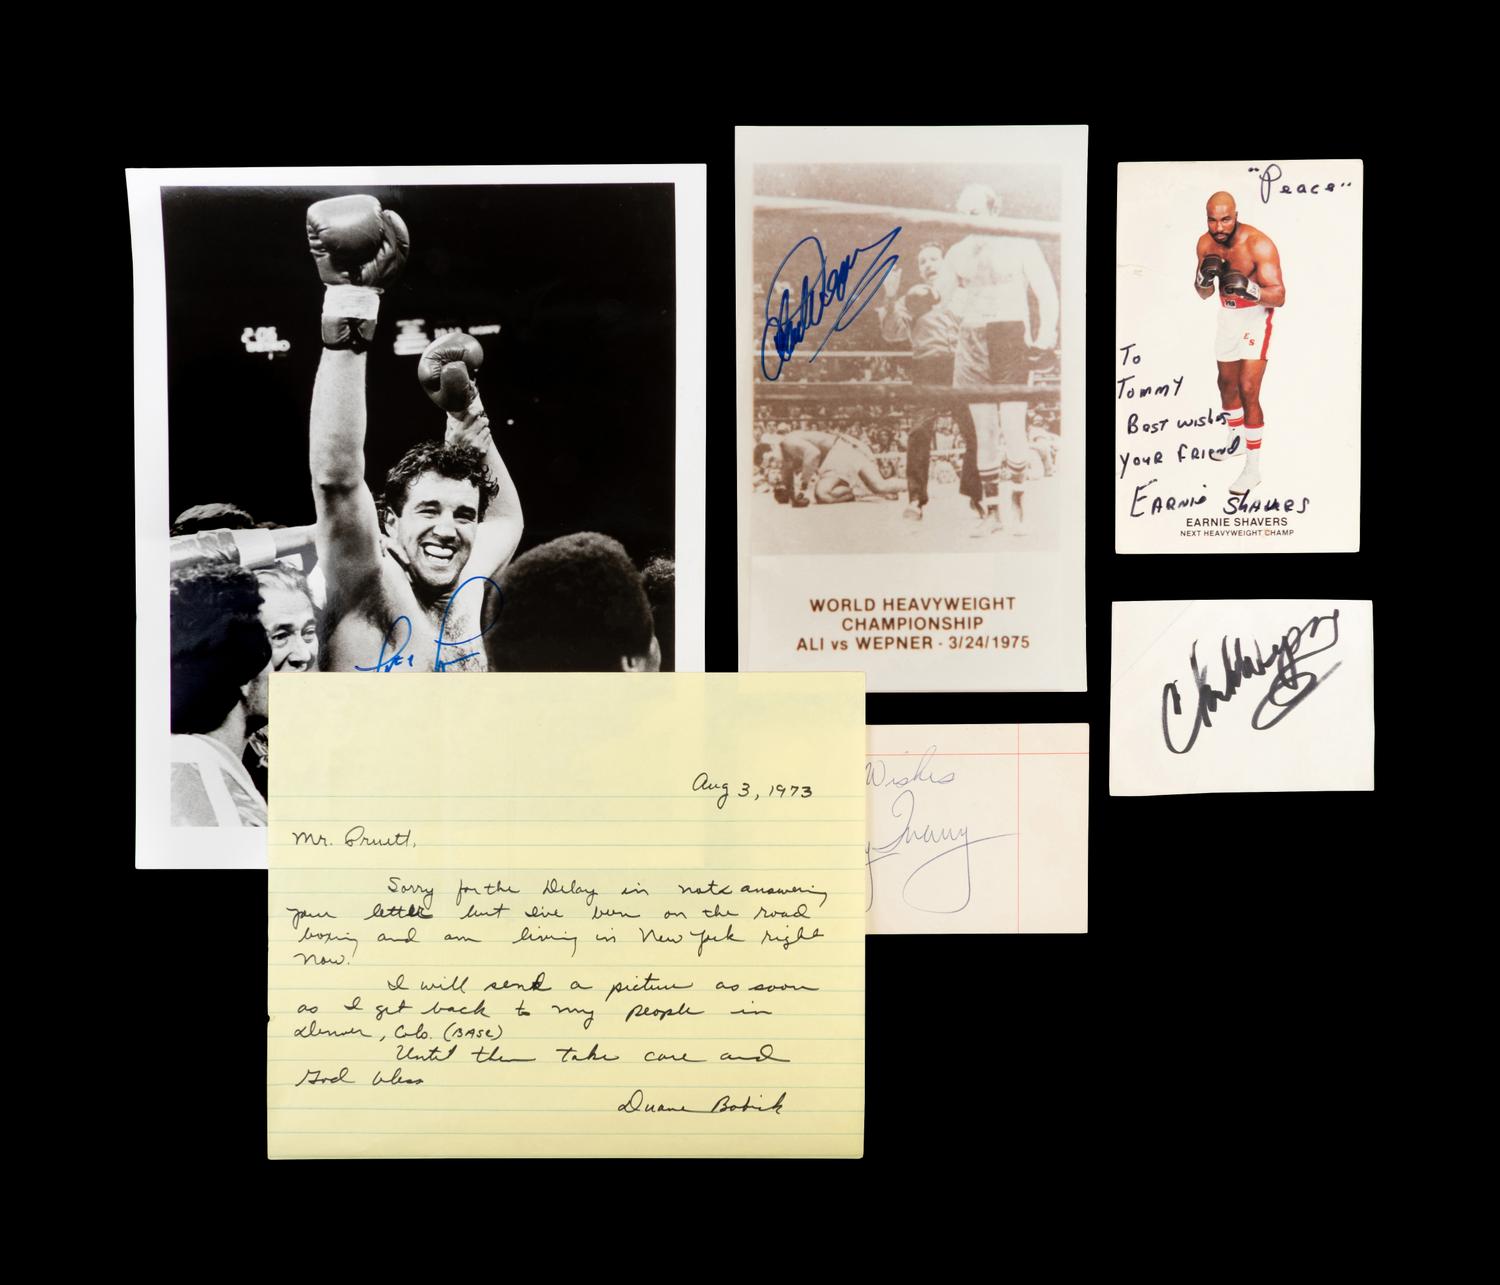 "Peace"
To
Tommy
Best wishes
Your Friend
Earnie Shavers
EARNIE SHAVERS
NEXT HEAVYWEIGHT CHAMP
WORLD HEAVYWEIGHT
CHAMPIONSHIP
ALI vs WEPNER - 3/24/1975
Chuck Wepner
Wishes
Aug 3, 1973
Mr. Pruett,
Sorry for the Delay in not answering
your letter but I've been on the road
boxing and am living in New York right
now.
I will send a picture as soon
as I get back to my people in
Denver, Colo. (BASE)
Until then take care and
God bless
Duane Bobick